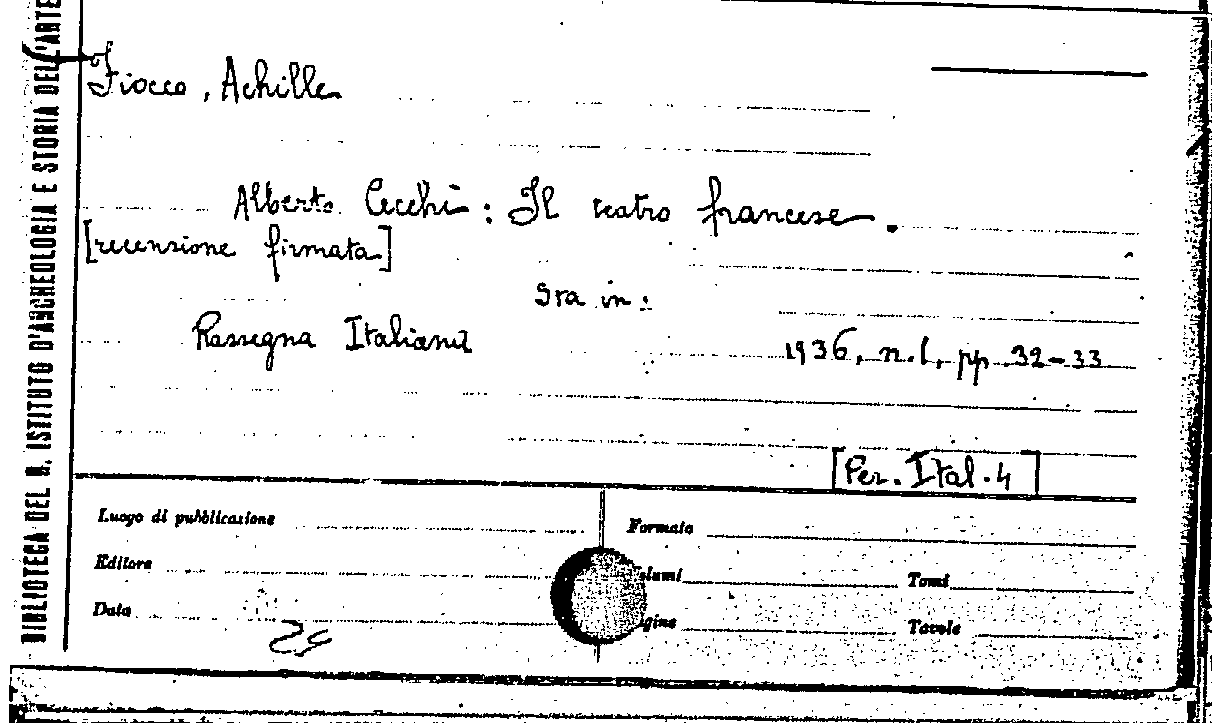 BIBLIOTECA DEL R. ISTITUTO D'ARCHEOLOGIA E STORIA DELL'ARTE
Fiocco, Achille
Alberto Cecchi: Il teatro francese.
[recensione firmata]
Sta in:
Rassegna Italiana
1936, n.1, pp. 32-33
[Per. Ital. 4]
Luogo di pubblicazione Formato
Editore lumi Tomi
Data gine Tavole